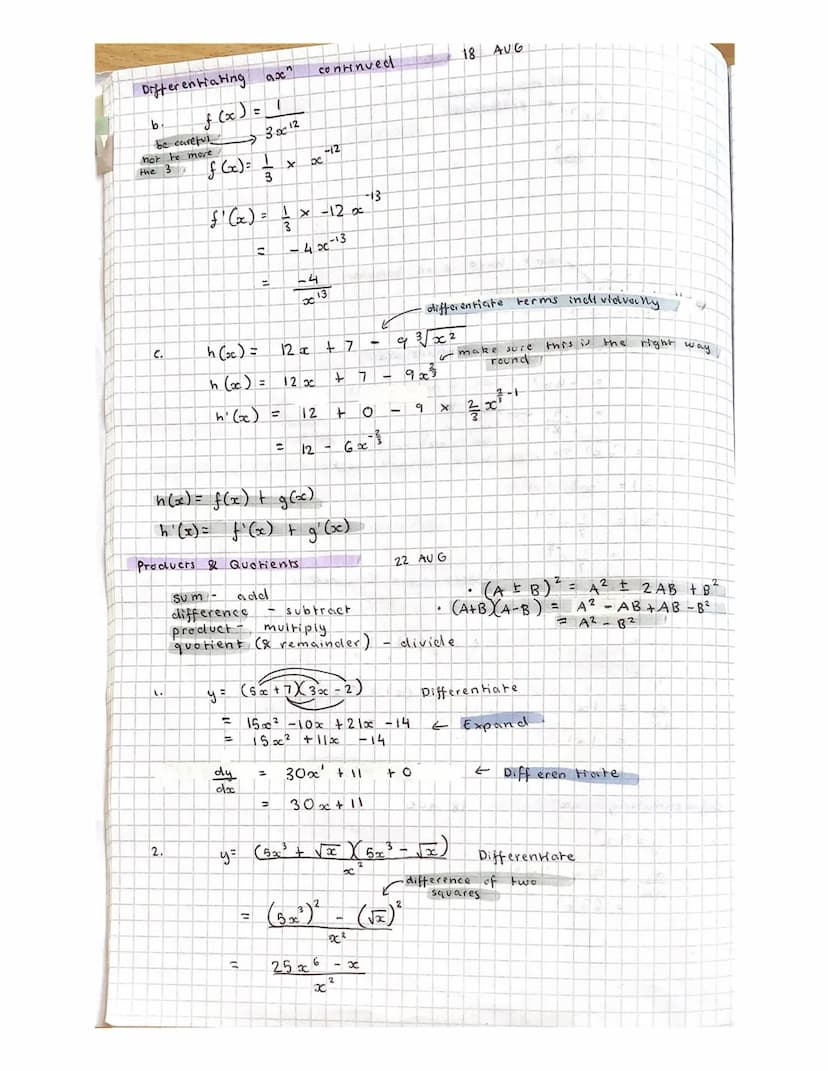 18 AUG
Differentiating axⁿ continued
b. f(x) = 1/3x¹²
be careful
not to move
the 3
f(x) = 1/3 × x⁻¹²
f'(x) = 1/3 × -12x⁻¹³
= -4x⁻¹³
= -4/x¹³
differentiate terms individually
c. h(x) = 12x + 7 - 9∛x²
make sure this is the right way
round
h(x) = 12x + 7 - 9x^(2/3)
h'(x) = 12 + 0 - 9 × 2/3 x^(2/3 - 1)
= 12 - 6x^(-2/3)
h(x) = f(x) + g(x)
h'(x) = f'(x) + g'(x)
Products & Quotients 22 AUG
sum - add
difference - subtract
product - multiply
quotient (& remainder) - divide
· (A ± B)² = A² ± 2AB + B²
· (A+B)(A-B) = A² - AB + AB - B²
= A² - B²
1. y = (5x+7)(3x-2) Differentiate
= 15x² -10x +21x -14 ← Expand
= 15x² +11x -14
dy/dx = 30x¹ + 11 + 0 ← Differentiate
= 30x + 11
2. y = (5x³ + √x)(5x³ - √x)/x² Differentiate
difference of two
squares
= (5x³)² - (√x)²/x²
= 25x⁶ - x/x²